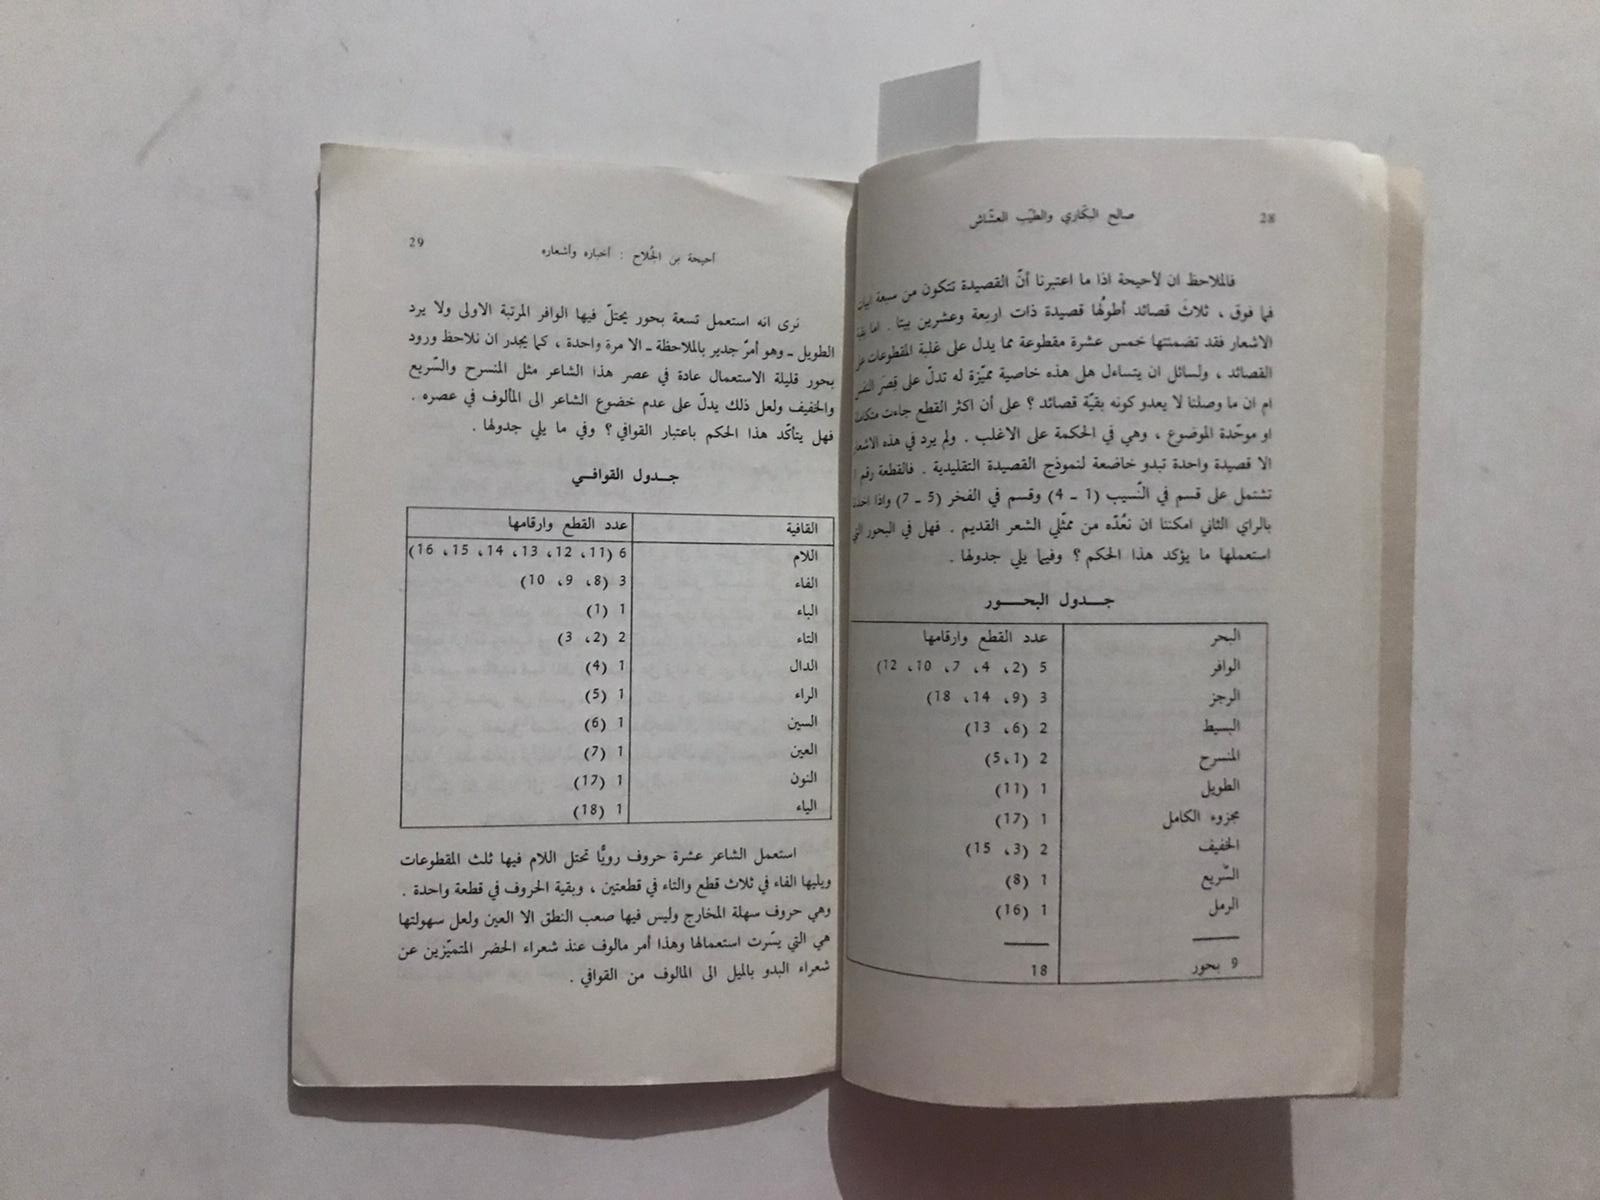 28
صالح البكّاري والطيّب العشّاش
فالملاحظ ان لأحيحة اذا ما اعتبرنا أنّ القصيدة تتكون من سبعة ابيات
فما فوق ، ثلاثَ قصائد أطولُها قصيدة ذات اربعة وعشرين بيتا . اما بقية
الاشعار فقد تضمنتها خمس عشرة مقطوعة مما يدل على غلبة المقطوعات على
القصائد ، ولسائل ان يتساءل هل هذه خاصية مميّزة له تدلّ على قِصَر النفس
ام ان ما وصلنا لا يعدو كونه بقيّة قصائد ؟ على أن اكثر القطع جاءت متكاملة
او موحّدة الموضوع ، وهي في الحكمة على الاغلب . ولم يرد في هذه الاشعار
الا قصيدة واحدة تبدو خاضعة لنموذج القصيدة التقليدية . فالقطعة رقم
تشتمل على قسم في النّسيب (1 ـ 4) وقسم في الفخر (5 ـ 7) واذا اخذنا
بالراي الثاني امكننا ان نعُدّه من ممثّلي الشعر القديم . فهل في البحور التي
استعملها ما يؤكد هذا الحكم ؟ وفيما يلي جدولها .
جـــدول البحـــــور
البحر عدد القطع وارقامها
الوافر 5 (2، 4، 7، 10، 12)
الرجز 3 (9، 14، 18)
البسيط 2 (6، 13)
المنسرح 2 (1،5)
الطويل 1 (11)
مجزوء الكامل 1 (17)
الخفيف 2 (3، 15)
السّريع 1 (8)
الرمل 1 (16)
9 بحور 18
أحيحة بن الجُلاح : أخباره وأشعاره
29
نرى انه استعمل تسعة بحور يحتلّ فيها الوافر المرتبة الاولى ولا يرد
الطويل ـ وهو أمرٌ جدير بالملاحظة ـ الا مرة واحدة ، كما يجدر ان نلاحظ ورود
بحور قليلة الاستعمال عادة في عصر هذا الشاعر مثل المنسرح والسّريع
والخفيف ولعل ذلك يدلّ على عدم خضوع الشاعر الى المألوف في عصره .
فهل يتأكّد هذا الحكم باعتبار القوافي ؟ وفي ما يلي جدولها .
جـــدول القوافــي
القافية عدد القطع وارقامها
اللام 6 (11، 12، 13، 14، 15، 16)
الفاء 3 (8، 9، 10)
الباء 1 (1)
التاء 2 (2، 3)
الدال 1 (4)
الراء 1 (5)
السين 1 (6)
العين 1 (7)
النون 1 (17)
الياء 1 (18)
استعمل الشاعر عشرة حروف رويًّا تحتل اللام فيها ثلث المقطوعات
ويليها الفاء في ثلاث قطع والتاء في قطعتين ، وبقية الحروف في قطعة واحدة .
وهي حروف سهلة المخارج وليس فيها صعب النطق الا العين ولعل سهولتها
هي التي يسّرت استعمالها وهذا أمر مالوف عند شعراء الحضر المتميّزين عن
شعراء البدو بالميل الى المالوف من القوافي .